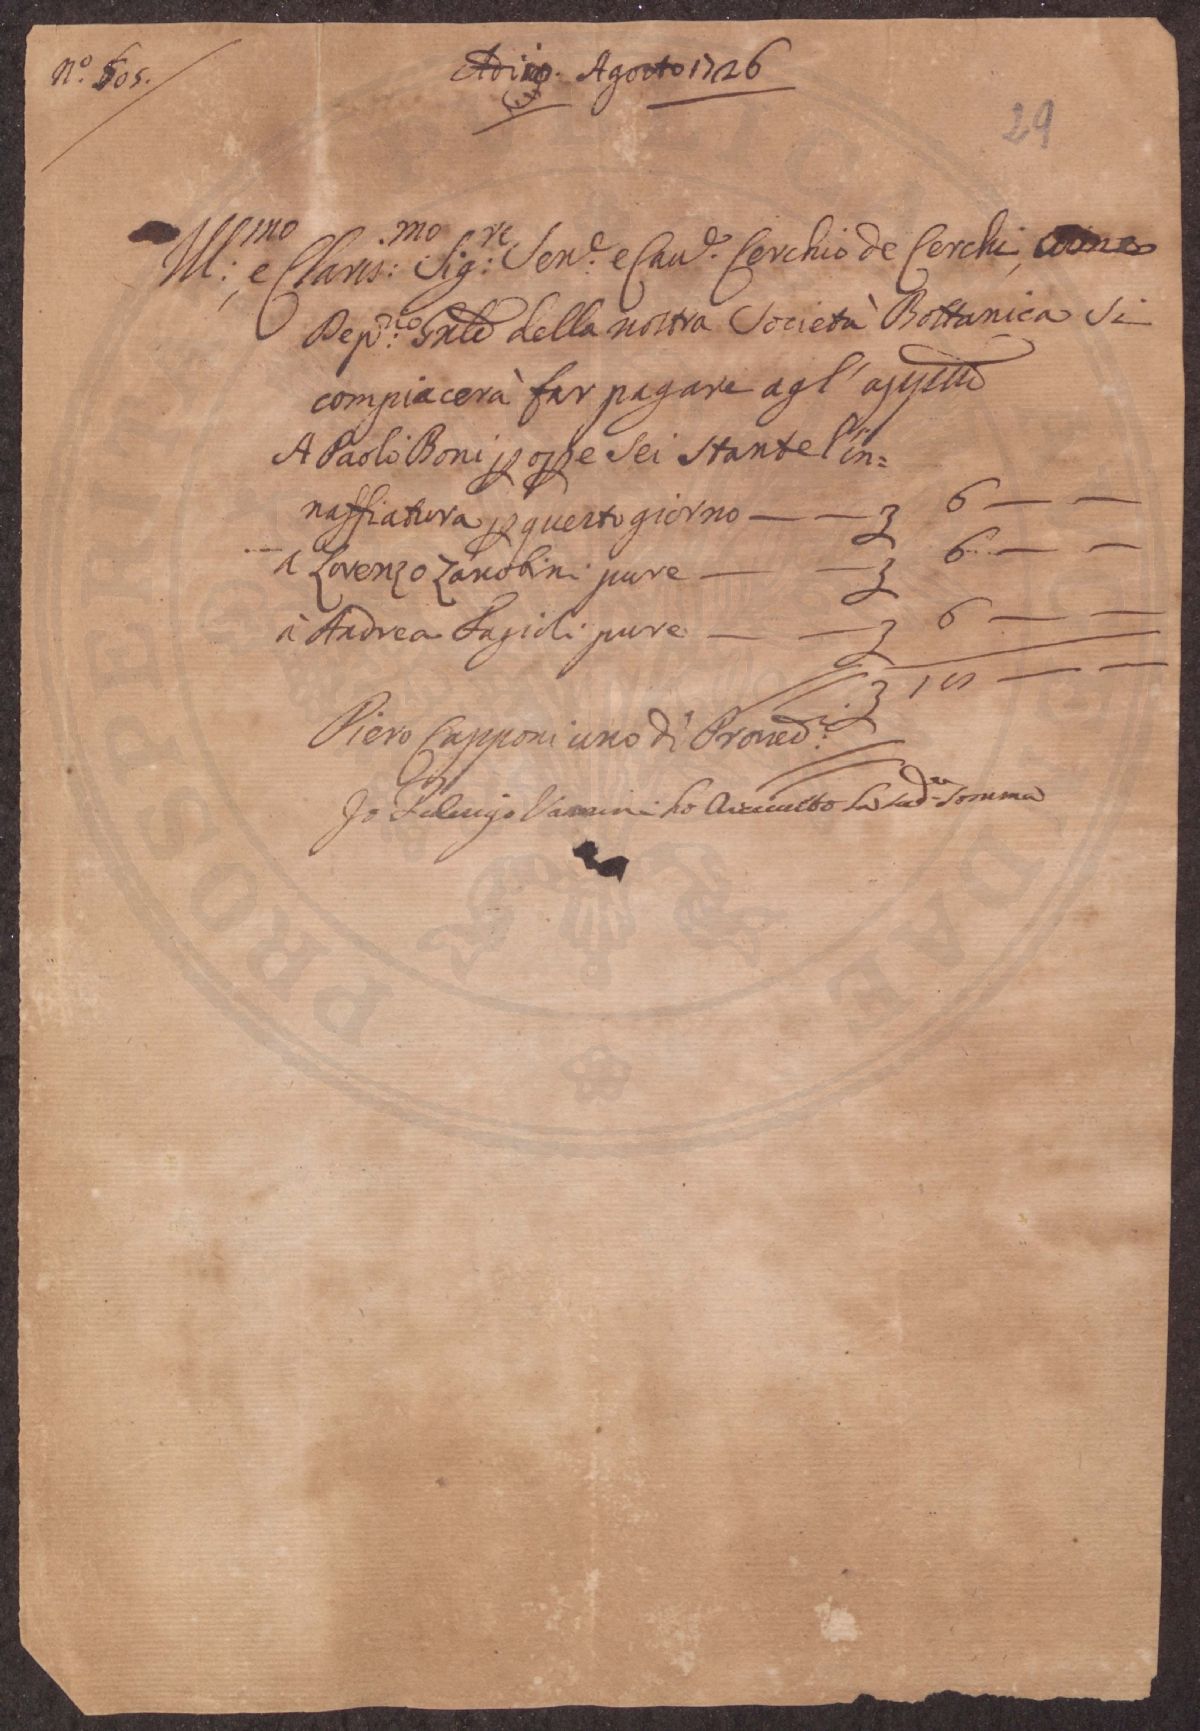 N.º 505.
Adi Agosto 1726
29
Ill:mo e Claris:mo Sig:re Sen.e e Cau.e Cerchio de Cerchi, come
Dep:rio Gnle della nostra Società Bottanica si
compiacerà far pagare agl'
A Paolo Boni opre sei stante l'in=
naffiatura questo giorno — — 6 — —
A Lorenzo Zanobini pure — — 6 — —
à Andrea pure — — 6 — —
18 — —
Piero Capponi uno dì Proued:ri
Io Vannini ho riceuuto la sud.a somma
PROSPERITATI PUBLICAE